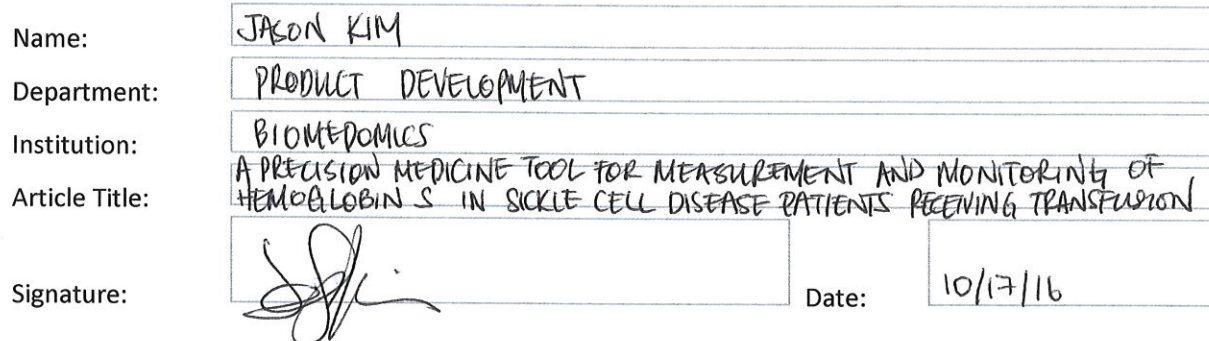 Name: JASON KIM
Department: PRODUCT DEVELOPMENT
Institution: BIOMEDOMICS
A PRECISION MEDICINE TOOL FOR MEASUREMENT AND MONITORING OF
Article Title: HEMOGLOBIN S IN SICKLE CELL DISEASE PATIENTS RECEIVING TRANSFUSION
Signature:
Date: 10/17/16